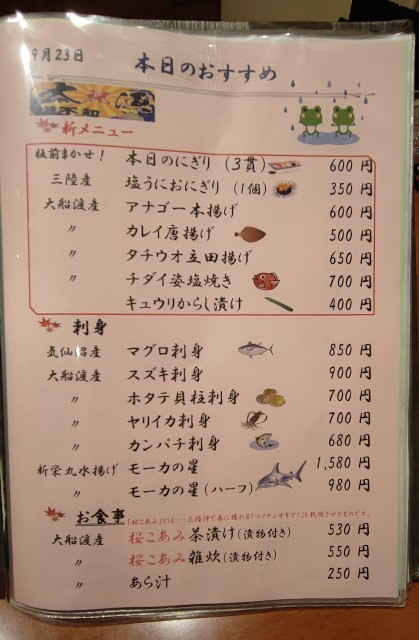 9月23日
本日のおすすめ
新メニュー
板前まかせ! 本日のにぎり (3貫) 600 円
三陸産 塩うにおにぎり (1個) 350 円
大船渡産 アナゴ一本揚げ 600 円
〃 カレイ唐揚げ 500 円
〃 タチウオ立田揚げ 650 円
〃 チダイ姿塩焼き 700 円
キュウリからし漬け 400 円
刺身
気仙沼産 マグロ刺身 850 円
大船渡産 スズキ刺身 900 円
〃 ホタテ貝柱刺身 700 円
〃 ヤリイカ刺身 700 円
〃 カンパチ刺身 680 円
新栄丸水揚げ モーカの星 1,580 円
〃 モーカの星 (ハーフ) 980 円
お食事 「桜こあみ」とは・・・三陸沖で春に獲れる「ツノナシオキアミ」
大船渡産 桜こあみ茶漬け (漬物付き) 530 円
〃 桜こあみ雑炊 (漬物付き) 550 円
〃 あら汁 250 円